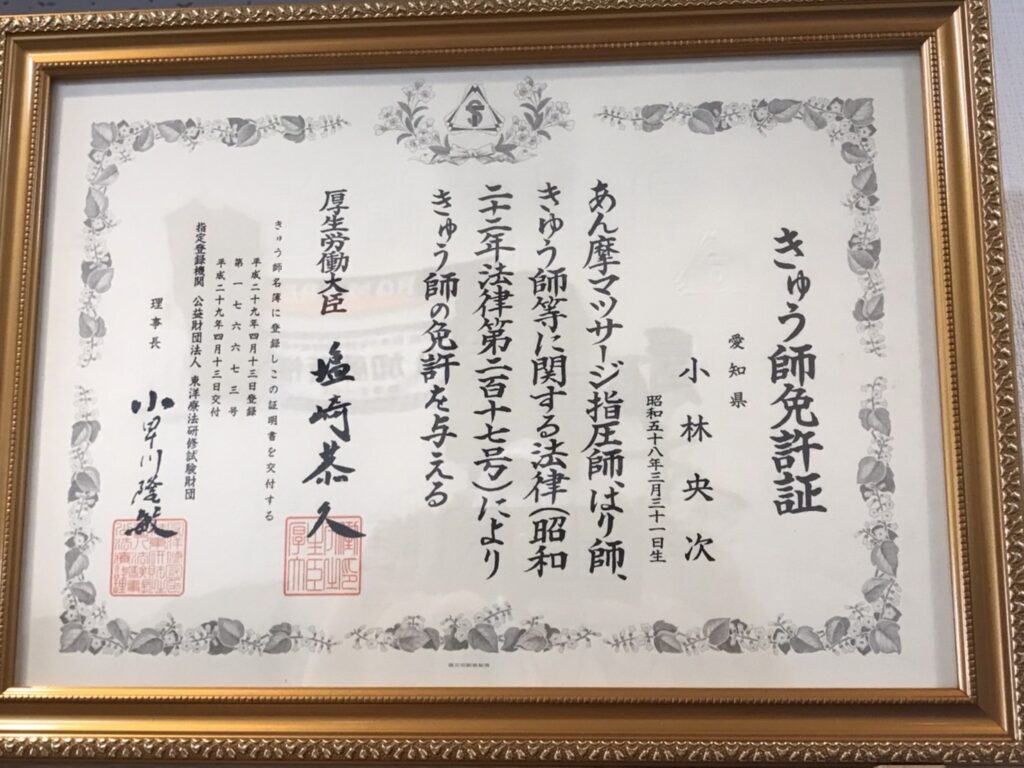 きゅう師免許証
愛知県
小林央次
昭和五十八年三月三十一日生
あん摩マツサージ指圧師、はり師、
きゆう師等に関する法律(昭和
二十二年法律第二百十七号)により
きゅう師の免許を与える
厚生労働大臣 塩崎恭久
きゅう師名簿に登録しこの証明書を交付する
平成二十九年四月十三日登録
第一七六六七三号
平成二十九年四月十三日交付
指定登録機関 公益財団法人 東洋療法研修試験財団
理事長 小早川隆敏